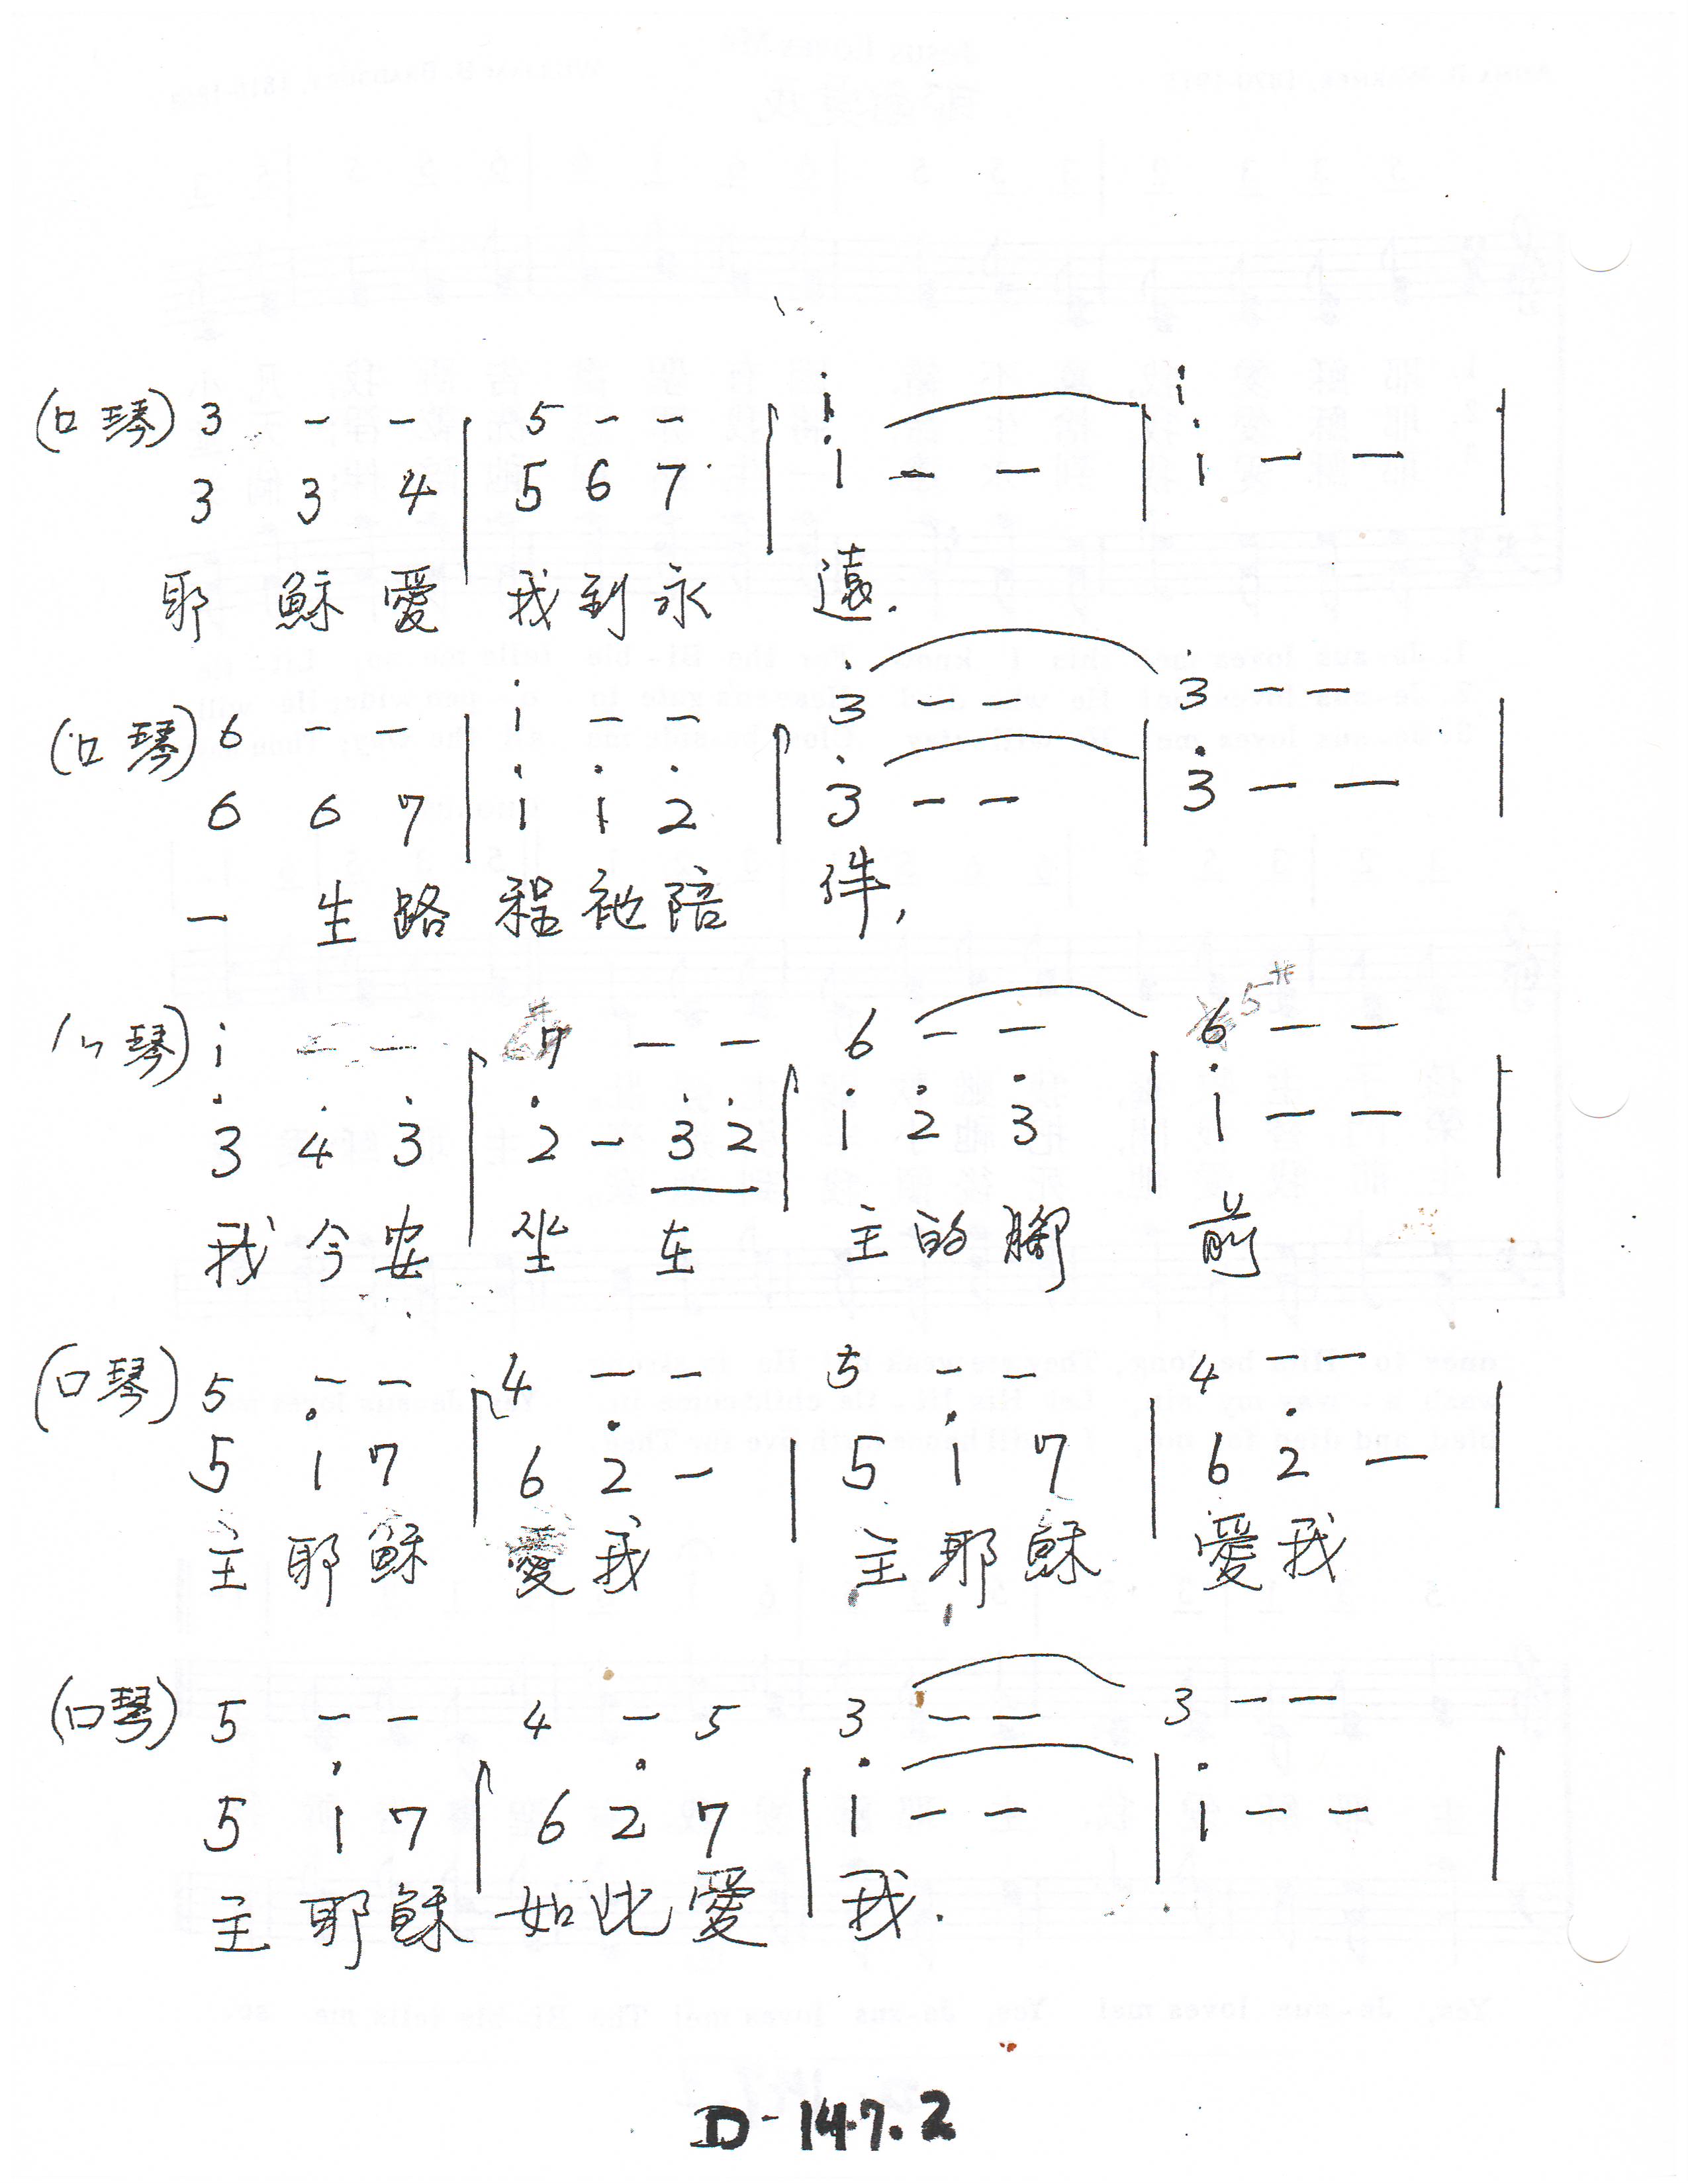 (口琴) 3 – – | 5 – – | i – – | i
3 3 4 | 5 6 7 | i – – | i – – |
耶 穌 愛 我 到 永 遠.
(口琴) 6 – – | i – – | 3̇ – – 3̇ – –
6 6 7 | i i 2̇ | 3̇ – – | 3̇ – – |
一 生 路 程 祂 陪 伴,
口琴) i – – | 7 – – 6 – – 5# – –
3̇ 4̇ 3̇ | 2̇ – 3̇ 2̇ | i 2̇ 3̇ | i – – |
我 今 安 坐 在 主 的 腳 前
(口琴) 5 – – | 4 – – 5 – – 4 – –
5 i 7 | 6 2̇ – | 5 i 7 | 6 2̇ – |
主 耶 穌 愛 我 主 耶 穌 愛 我
(口琴) 5 – – 4 – 5 3 – – 3 – –
5 i 7 | 6 2̇ 7 | i – – | i – – |
主 耶 穌 如 此 愛 我.
D-147.2